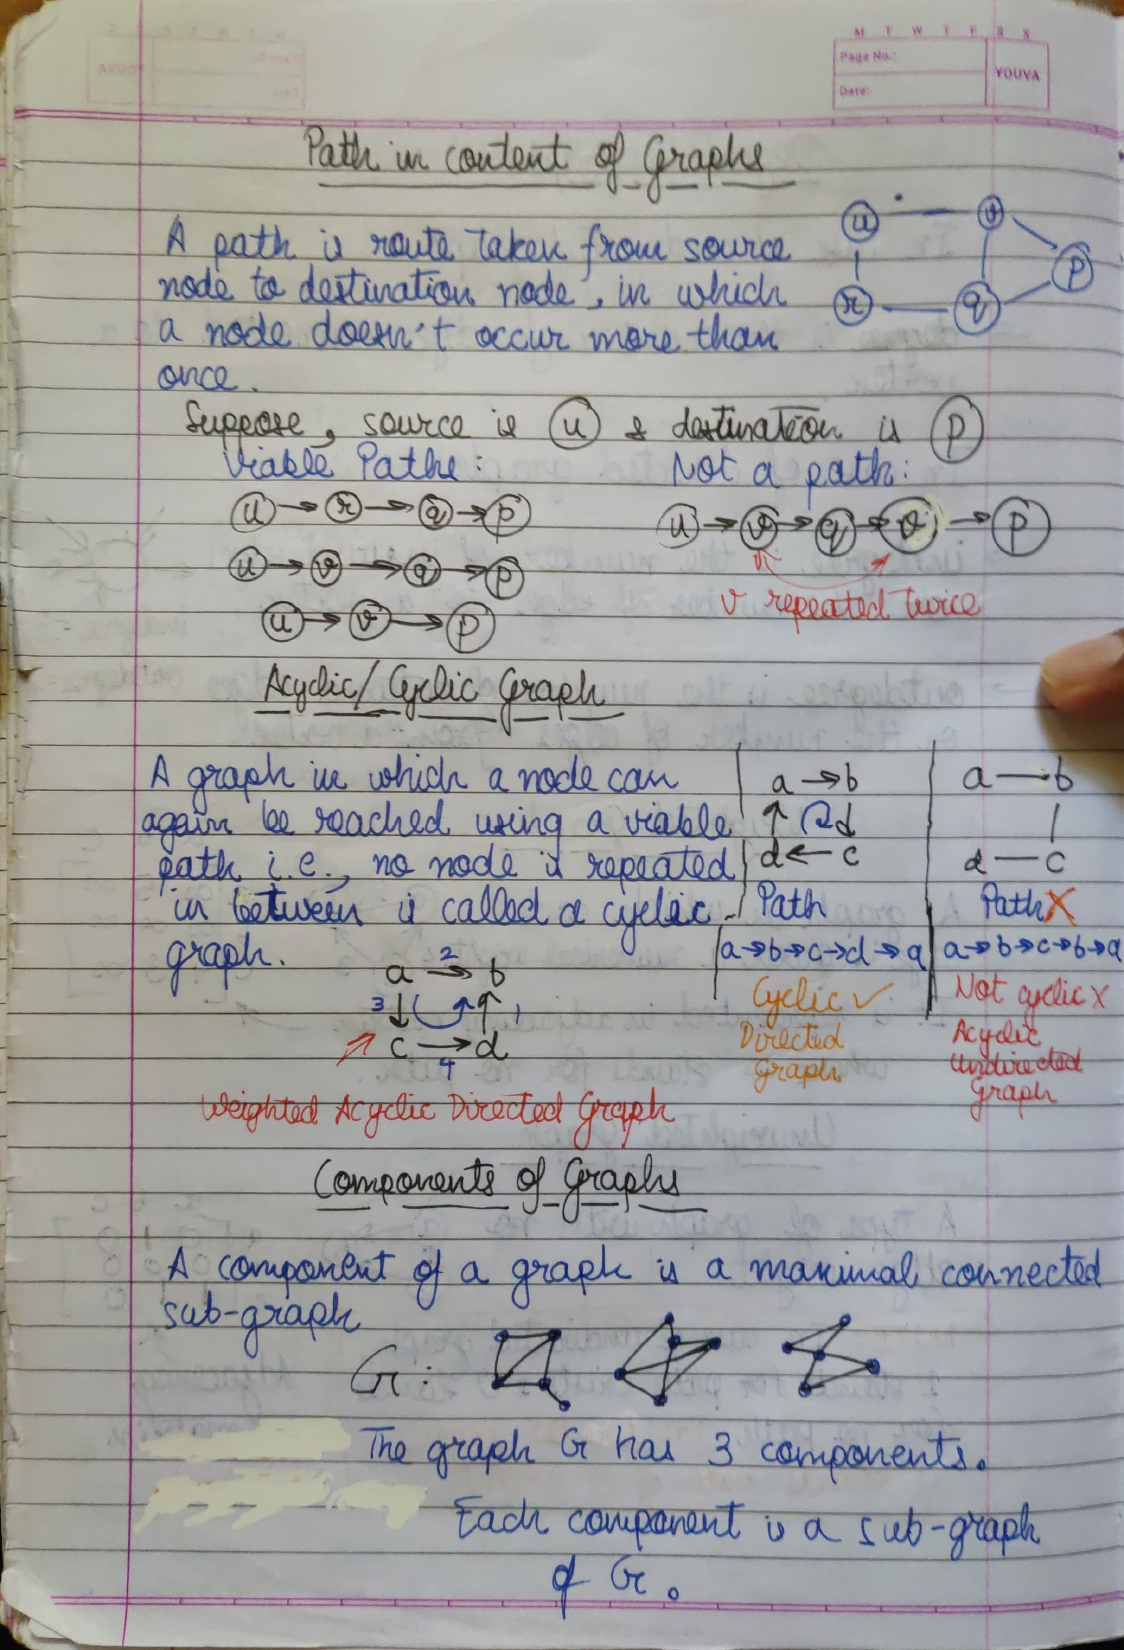 M T W T F S S
Page No.:
YOUVA
Date:
Path in content of Graphs
A path is route taken from source
node to destination node, in which
a node doesn't occur more than
once.
u v
p
r q
Suppose, source is u & destination is p
Viable Paths:
u → r → q → p
u → v → q → p
u → v → p
Not a path:
u → v → q → v → p
v repeated twice
Acyclic/Cyclic Graph
A graph in which a node can
again be reached using a viable
path i.e., no node is repeated
in between is called a cyclic
graph.
a → b
d ← c
Path
a→b→c→d→a
Cyclic ✓
Directed
Graph
a — b
d — c
Path X
a→b→c→b→a
Not cyclic X
Acyclic
Undirected
Graph
2
a → b
3 1
c → d
4
Weighted Acyclic Directed Graph
Components of Graphs
A component of a graph is a maximal connected
sub-graph
G:
The graph G has 3 components.
Each component is a sub-graph
of G.